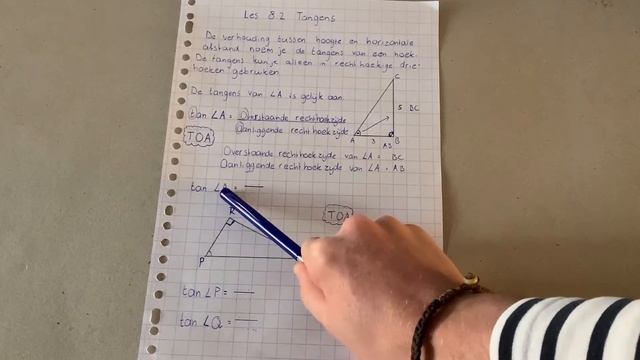 Les 8.2 Tangens
De verhouding tussen hoogte en horizontale
afstand noem je de tangens van een hoek.
De tangens kun je alleen in rechthoekige drie-
hoeken gebruiken.
De tangens van ∠A is gelijk aan:
tan ∠A = Overstaande rechthoekzijde
Aanliggende rechthoekzijde
TOA
C
5 BC
A 3 AB B
Overstaande rechthoekzijde van ∠A = BC
Aanliggende rechthoekzijde van ∠A = AB
tan ∠A =
R
TOA
P
tan ∠P =
tan ∠Q =